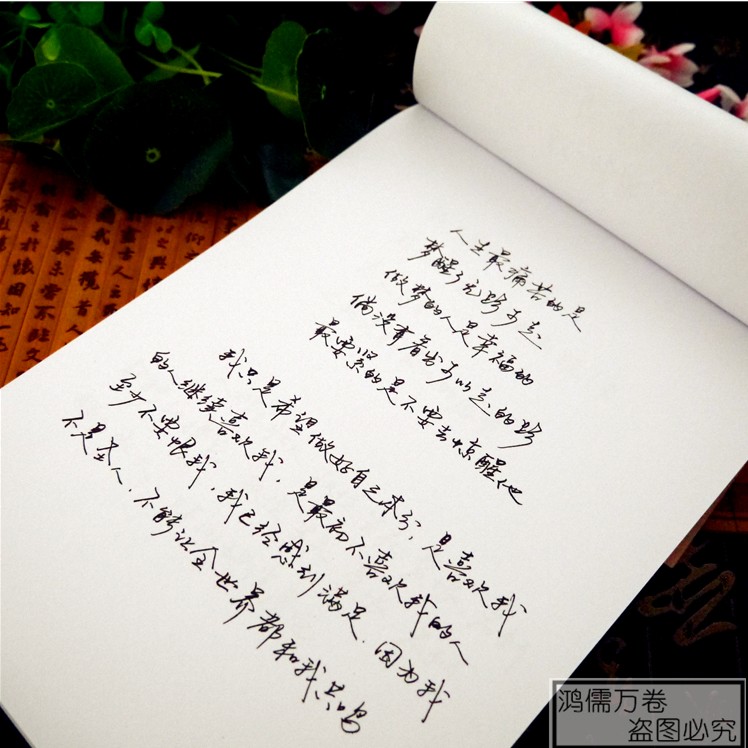 人生最痛苦的是
梦醒了无路可走
做梦的人是幸福的
倘没有看出可以走的路
最要紧的是不要去惊醒他
我只是希望做好自己本分，是喜欢我
的人继续喜欢我，是最初不喜欢我的人
至少不要恨我，我已经感到满足，因为我
不是圣人，不能让全世界都和我共鸣
鸿儒万卷
盗图必究